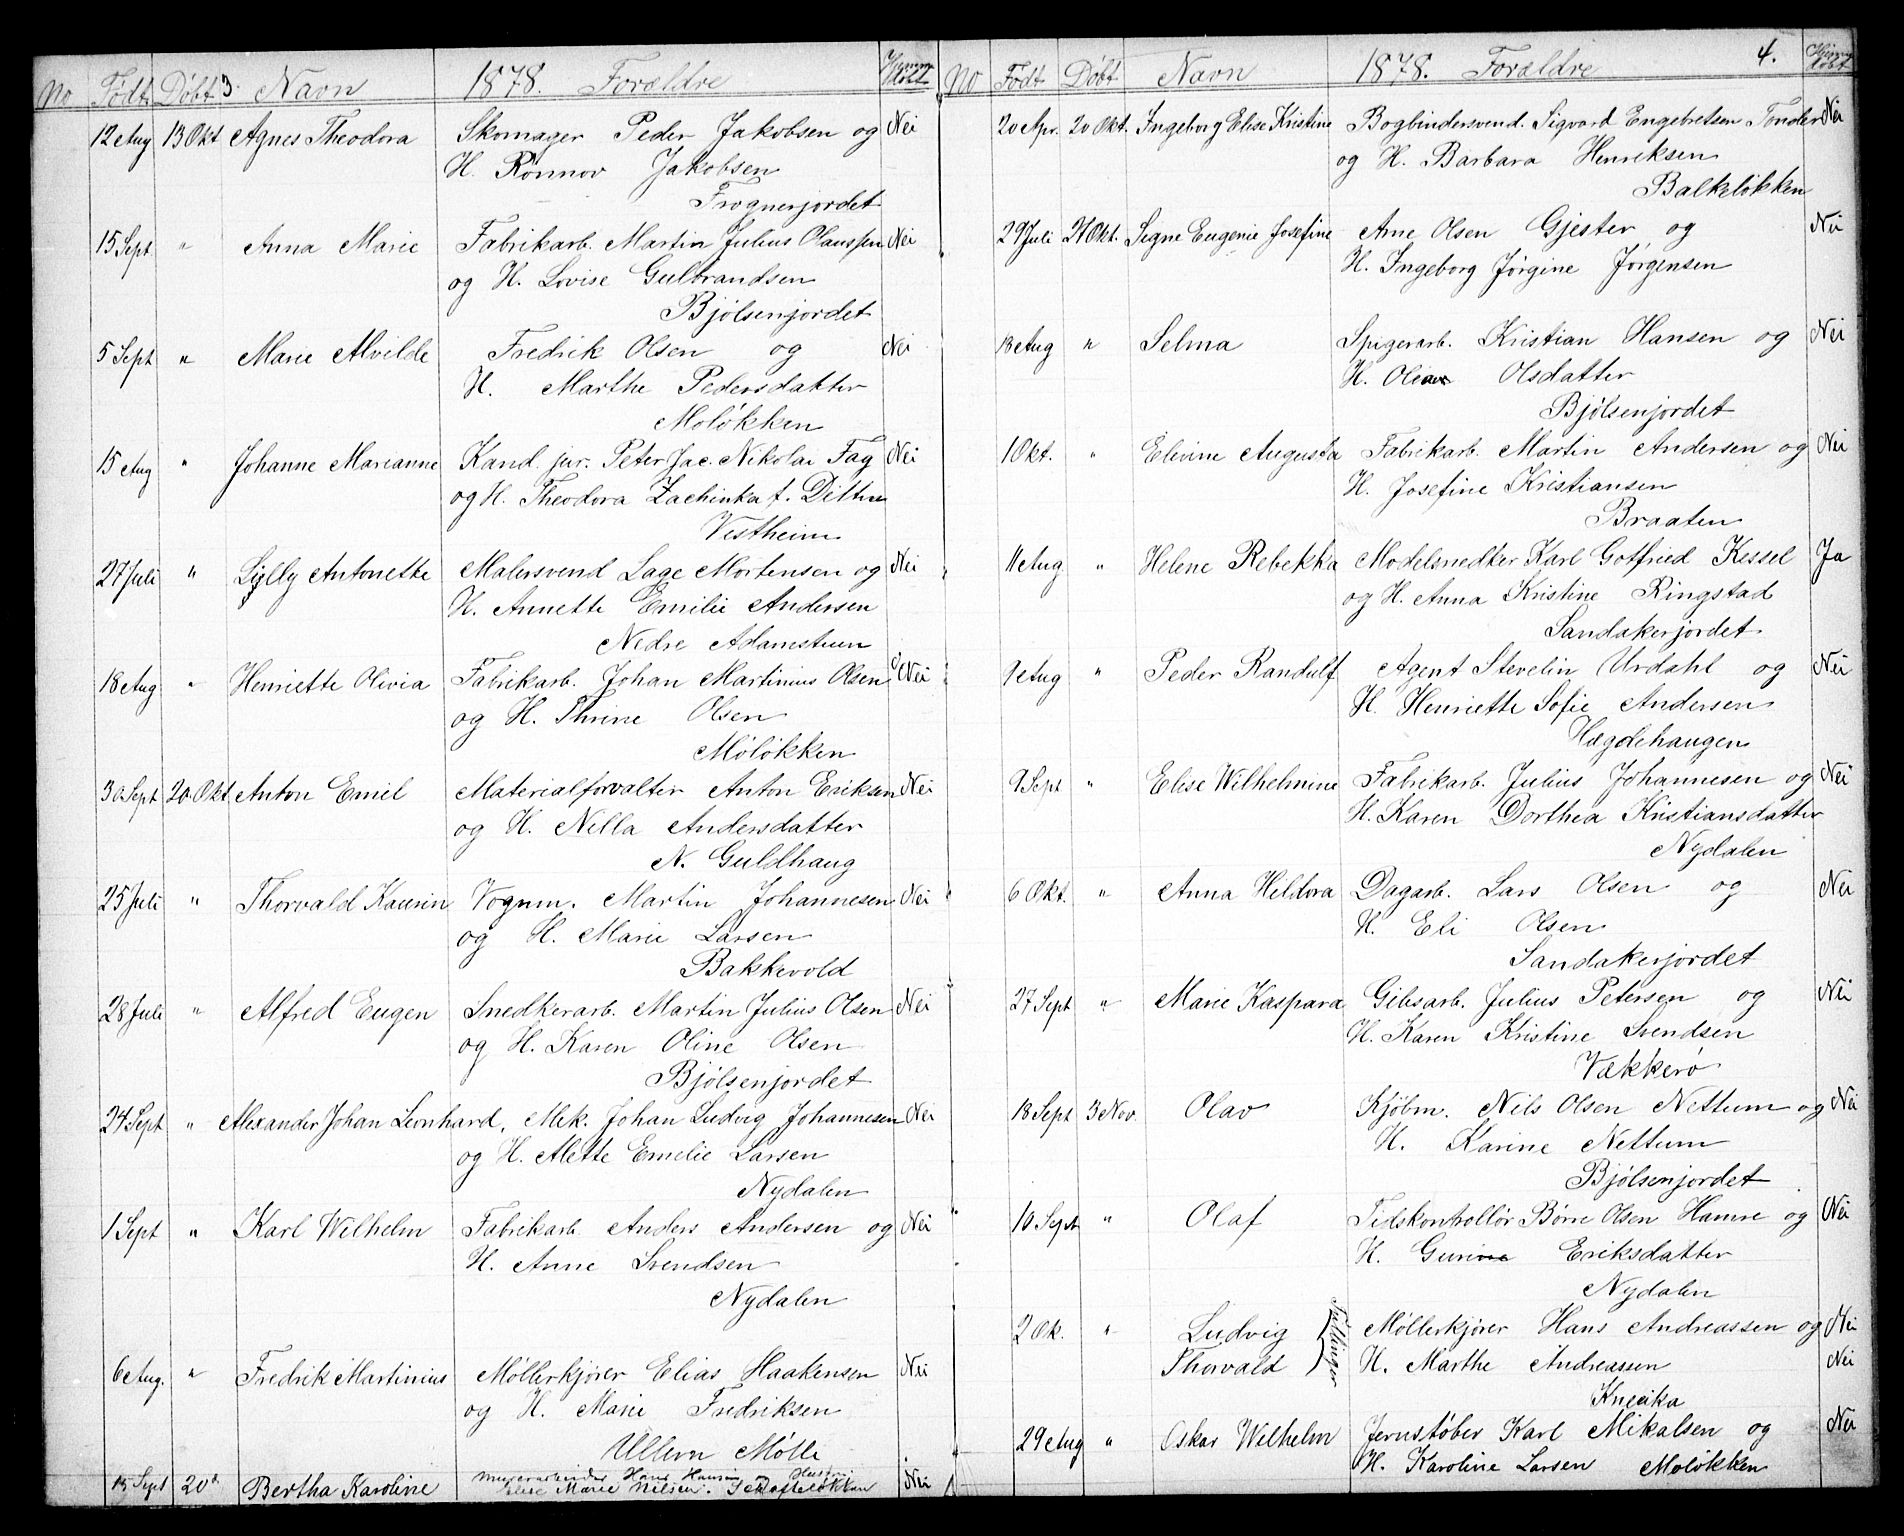 No Født Døbt 3. Navn 1878. Forældre Hjemmedøbt
12 Aug 13 Okt Agnes Theodora Skomager Peder Jakobsen og Nei
H. Rønnov Jakobsen
Frognerjordet
15 Sept " Anna Marie Fabrikarb. Martin Julius Olaussen Nei
og H. Lovise Gulbrandsen
Bjølsenjordet
5 Sept " Marie Alvilde Fredrik Olsen og Nei
H. Marthe Pedersdatter
Moløkken
15 Aug " Johanne Marianne Kand. jur. Peter Jac. Nikolai Fag Nei
og H. Theodora Zachinka f. Ditten
Vestheim
27 Juli " Lylly Antonette Malersvend Lage Mortensen og Nei
H. Annette Emilie Andersen
Nedre Adamstuen
18 Aug " Henriette Olivia Fabrikarb. Johan Martinius Olsen Nei
og H. Thrine Olsen
Møløkken
30 Sept 20 Okt Anton Emil Materialforvalter Anton Eriksen Nei
og H. Nilla Andersdatter
N. Guldhaug
25 Juli " Thorvald Kaurin Vognm. Martin Johannesen Nei
og H. Marie Larsen
Bakkevold
28 Juli " Alfred Eugen Snedkerarb. Martin Julius Olsen Nei
og H. Karen Oline Olsen
Bjølsenjordet
24 Sept " Alexander Johan Leonhard, Mek. Johan Ludvig Johannesen Nei
og H. Mette Emelie Larsen
Nydalen
1 Sept " Karl Wilhelm Fabrikarb Anders Andersen og Nei
H. Anne Svendsen
Nydalen
6 Aug. " Fredrik Martinius Møllerkjører Elias Haakensen Nei
og H. Marie Fredriksen
Ullern Mølle
15 Sept 20d Bertha Karoline Murerarbeider Hans Hansen og Hustru Nei
Elise Marie Nilsen.
No Født Døbt Navn 1878. Forældre 4. Hjemmedøbt
20 Apr. 20 Okt. Ingeborg Elise Kristine Bogbindersvend. Sigvard Engebretsen Tonder Nei
og H. Barbara Henriksen
Balkeløkken
29 Juli 20 Okt. Signe Eugenie Josefine Arne Olsen Gjester og Nei
H. Ingeborg Jørgine Jørgensen
13 Aug " Selma Spigerarb. Kristian Hansen og Nei
H. Olsdatter
Bjølsenjordet
1 Okt. " Elivine Augusta Fabrikarb. Martin Andersen og Nei
H. Josefine Kristiansen
Braaten
11 Aug " Helene Rebekka Modelsnedker Karl Gotfried Kessel Ja
og H. Anna Kristine Ringstad
Sandakerjordet
9 Aug " Peder Randulf Agent Stevelin Urdahl og Nei
H. Henriette Sofie Andersen
Hægdehaugen
9 Sept " Elise Wilhelmine Fabrikarb. Julius Johannesen og Nei
H. Karen Dorthea Kristiansdatter
Nydalen
6 Okt. " Anna Heldora Dagarb. Lars Olsen og Nei
H. Eli Olsen
Sandakerjordet
27 Sept " Marie Kaspara Gibsarb. Julius Petersen og Nei
H. Karen Kristine Svendsen
Vækkerø
18 Sept 3 Nov. Olav Kjøbm. Nils Olsen Nettum og Nei
H. Karine Nettum
Bjølsenjordet
10 Sept " Olaf Tidskontrollør Børre Olsen Hamre og Nei
H. Gurine Eriksdatter
Nydalen
2 Ok. " Ludvig Tvillinger Møllerkjører Hans Andreassen og Nei
Thorvald H. Marthe Andreassen Nei
Kneika
29 Aug " Oskar Wilhelm Jernstøber Karl Mikalsen og Nei
H. Karoline Larsen Moløkken